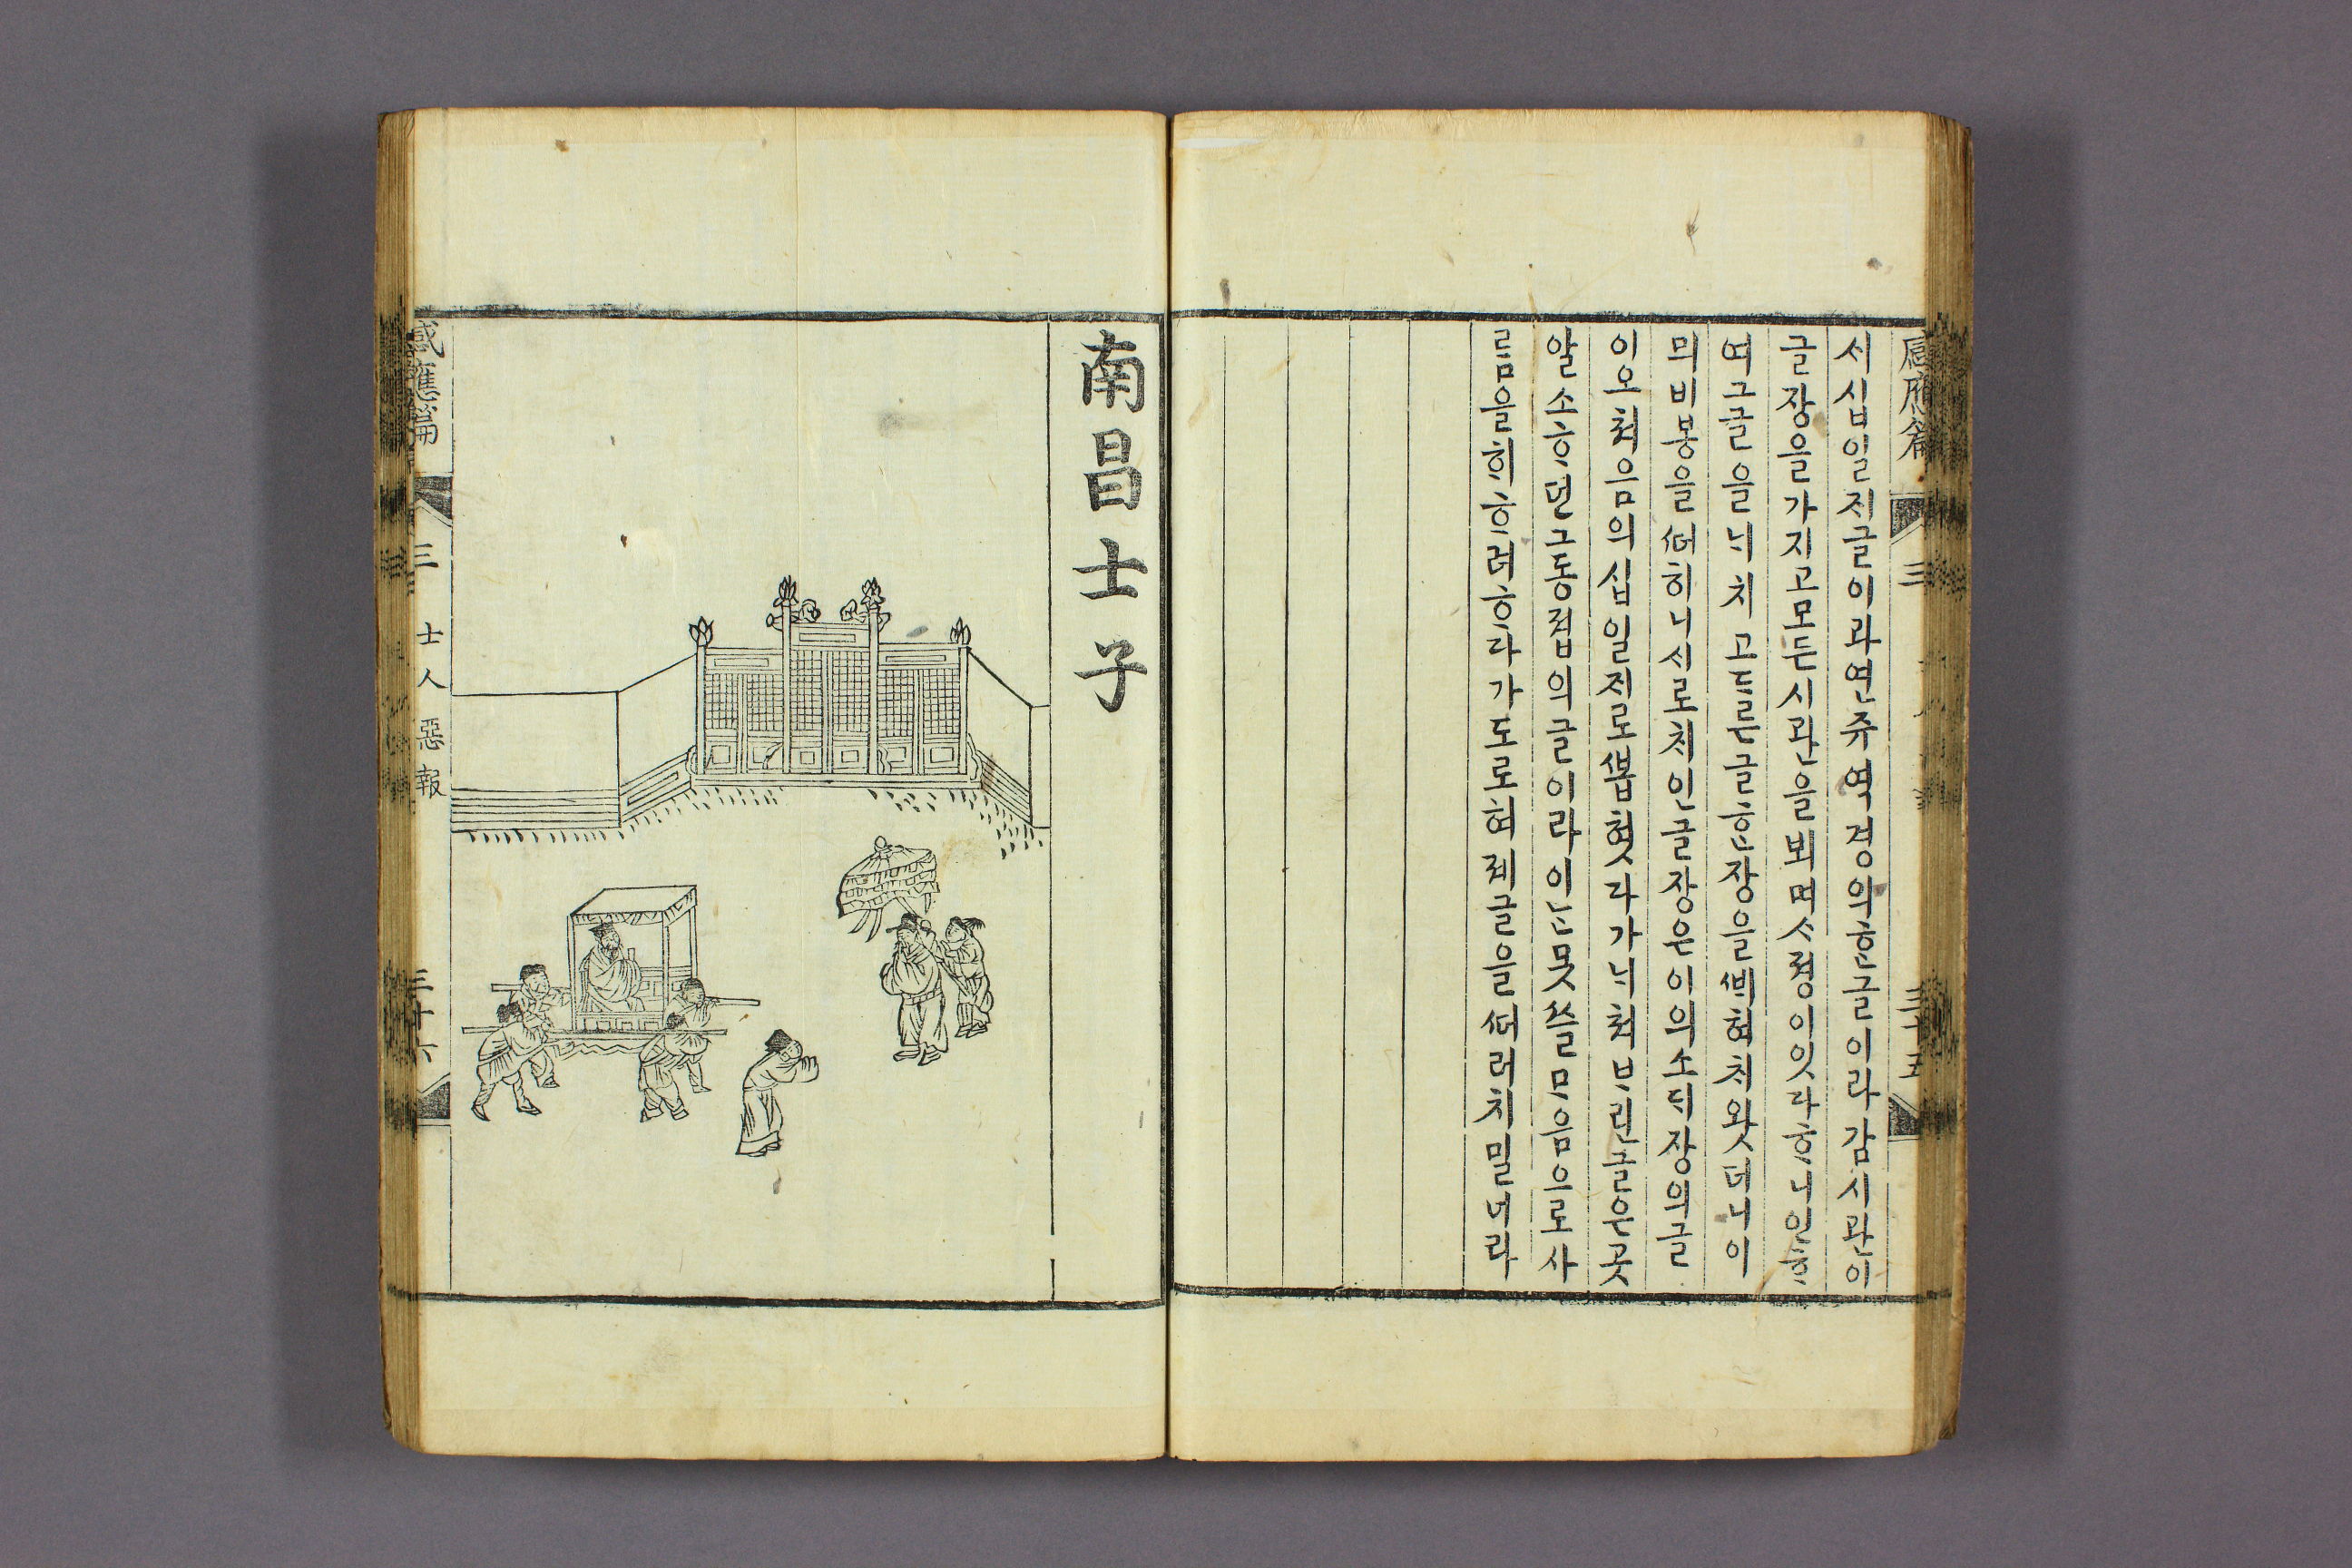 感應篇 三 三十五
셔십일ᄌᆡ글이라연쥬역경의ᄒᆞᆫ글이라감시관이
글장을가지고모든시관을뵈며ᄉᆞ졍이잇다ᄒᆞ니인ᄒᆞ
여그글을ᄂᆡ치고드른글ᄒᆞᆫ장을ᄲᅢ혀ᄎᆡ왓더니이
믜비봉을ᄯᅥ히니ᄉᆡ로ᄎᆡ인글장은이의소ᄃᆡ장의글
이오쳐음의십일ᄌᆡ로ᄲᅩᆸ혓다가ᄂᆡ쳐ᄇᆞ린글은곳
알소ᄒᆞ던그동졉의글이라이ᄂᆞᆫ못ᄡᅳᆯᄆᆞ음으로사
ᄅᆞᆷ을ᄒᆡᄒᆞ려ᄒᆞ다가도로혀졔글을ᄯᅥ러치밀너라
南昌士子
感應篇 三 士人惡報 三十六